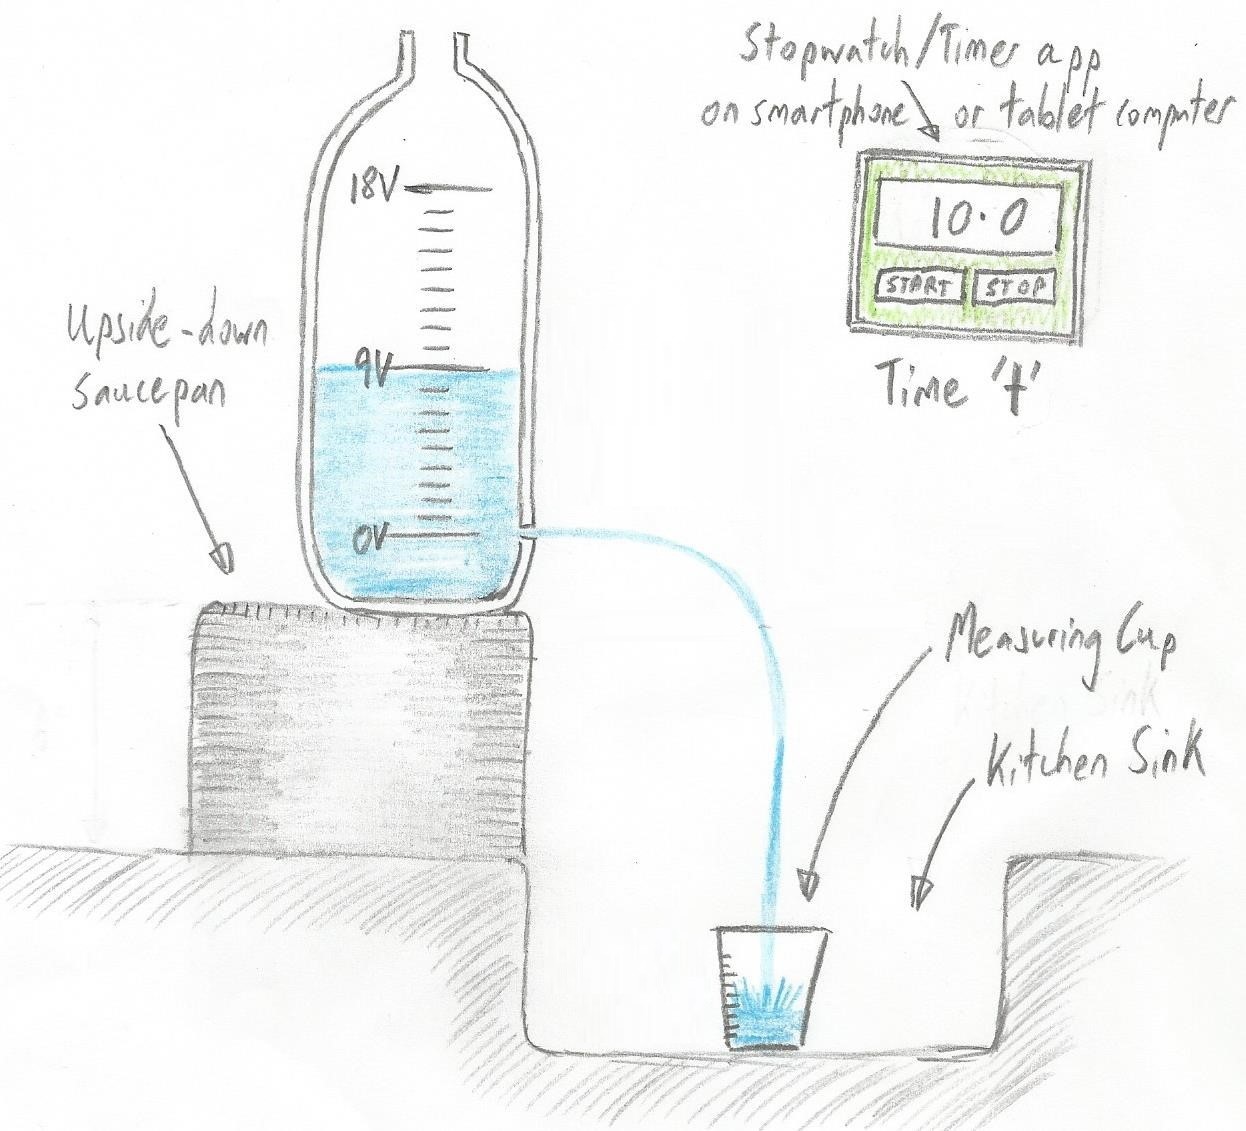 Stopwatch/Timer app
on smartphone or tablet computer
10.0
START STOP
Time 't'
18V
9V
0V
Upside-down
saucepan
Measuring Cup
Kitchen Sink